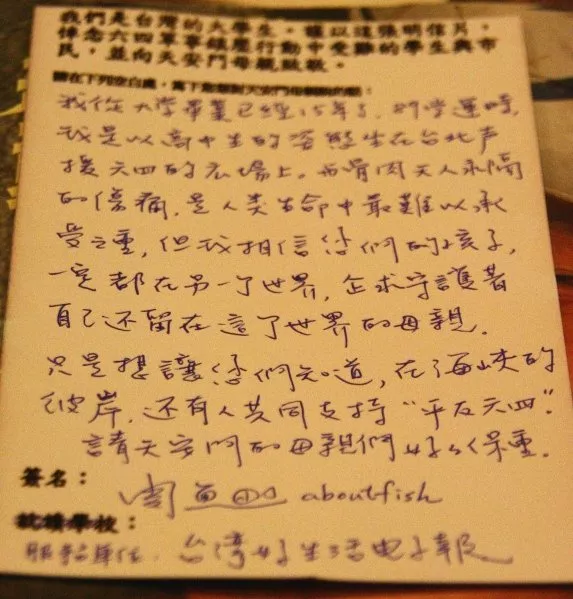 我們是台灣的大學生。謹以這張明信片，
悼念六四軍事鎮壓行動中受難的學生與市
民，並向天安門母親致敬。
請在下列空白處，寫下您想對天安門母親說的話：
我從大學畢業已經15年了，
我是以高中生的姿態坐在台北声
援六四的広場上。而骨肉天人永隔
的傷痛，是人类生命中最難以承
受之重，但我相信您們的孩子，
一定都在另一了世界，企求守護著
自己还留在這了世界的母親。
只是想讓您們知道，在海峽的
彼岸，还有人共同支持“平反六四”。
請天安門的母親們好好保重。
簽名：
周 aboutfish
就讀學校：
服務單位. 台灣好生活电子報